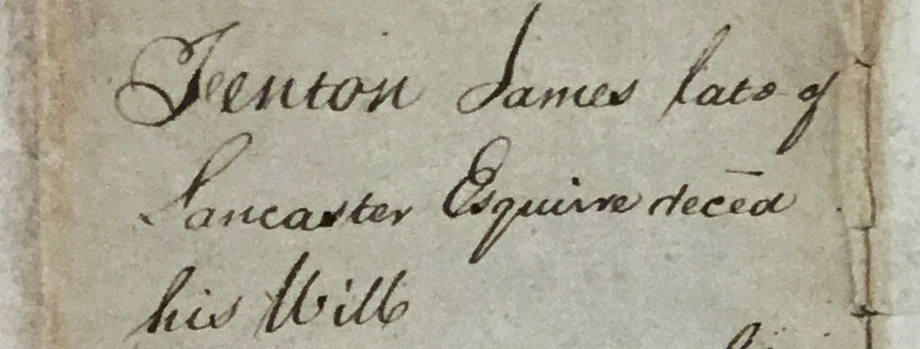 Fenton James late of
Lancaster Esquire decēd
his Will